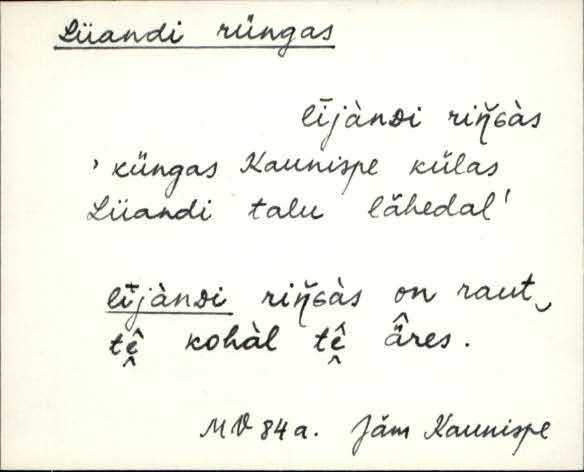 Lüandi rüngas
lījànᴅi riŋ̆ɢàs
'küngas Kaunispe külas
Lüandi talu lähedal'
lījàndi riŋ̆ɢàs on raut‿
tḙ̂ kohàl tḙ̂ äres.
MV 84 a. Jäm Kaunispe